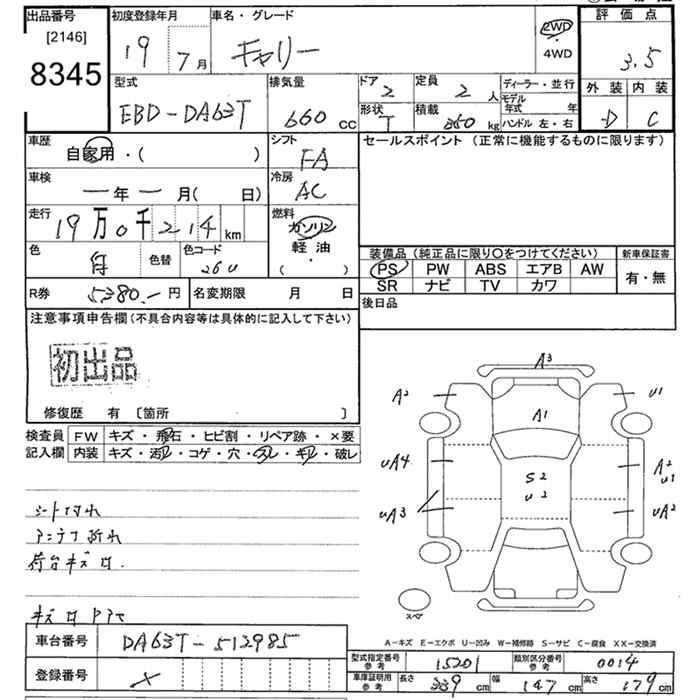 出品番号
[2146]
8345
初度登録年月
19 7月
車名・グレード
キャリー
2WD
4WD
評価点
3.5
外装 内装
D C
型式
EBD-DA63T
排気量
660 cc
ドア
2
定員
2 人
形状
T
積載
350 kg
ディーラー・並行
モデル年式 年
ハンドル 左・右
車歴
自家用・( )
シフト
FA
セールスポイント (正常に機能するものに限ります)
車検
ー年ー月( 日)
冷房
AC
走行
19万0千214km
燃料
ガソリン
軽油
( ・ )
色
白
色替
色コード
26U
装備品 (純正品に限り○をつけてください)
新車保証書
PS PW ABS エアB AW
有・無
SR ナビ TV カワ
R券
5380.- 円
名変期限 月 日
後日品
注意事項申告欄(不具合内容等は具体的に記入して下さい)
初出品
修復歴 有 〔箇所 〕
検査員
記入欄
FW キズ・飛石・ヒビ割・リペア跡・×要
内装 キズ・汚レ・コゲ・穴・スレ・キレ・破レ
シート汚れ
アンテナ折れ
荷台キズ凹
A3
A2
U1
A1
UA4
A2
U1
S2
U2
UA3
UA2
スペア
A-キズ E-エクボ U-凹み W-補修跡 S-サビ C-腐食 XX-交換済
車台番号
DA63T-512985
登録番号
×
型式指定番号
参考
15201
類別区分番号
参考
0014
車庫証明用
参考
長さ 339 cm 幅 147 cm 高さ 179 cm